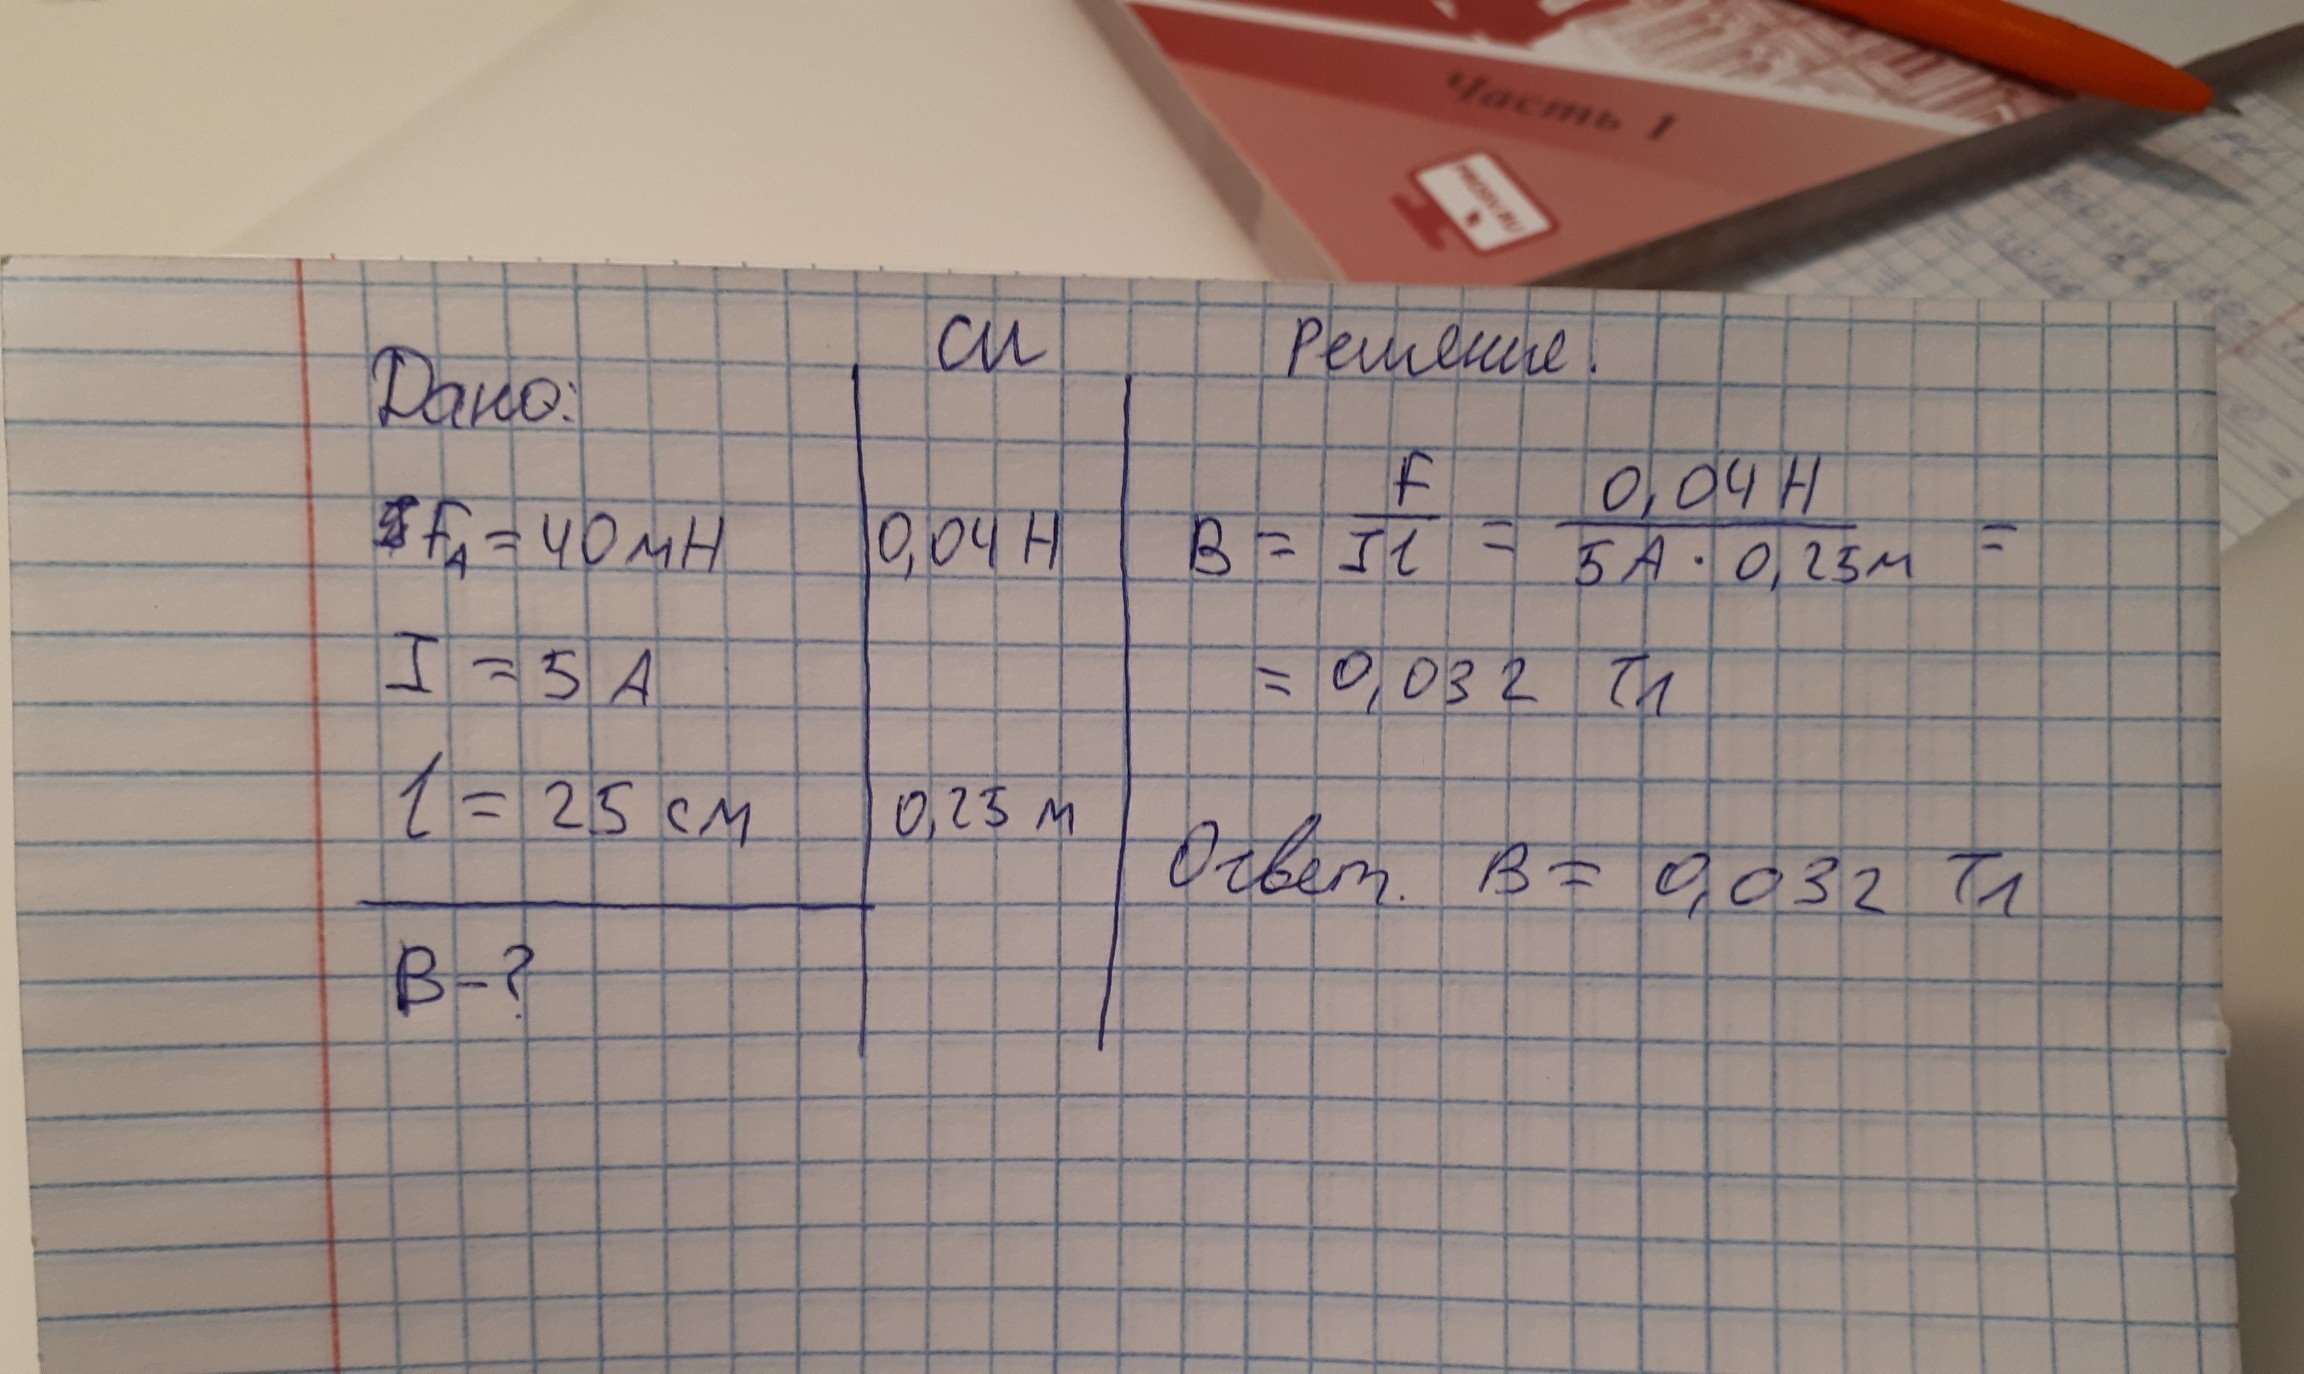 Часть 1
Дано:
F_A = 40 мН
I = 5 А
l = 25 см
В - ?
СИ
0,04 Н
0,25 м
Решение.
B = F/Il = 0,04 Н / 5 А · 0,25 м =
= 0,032 Тл
Ответ. В = 0,032 Тл